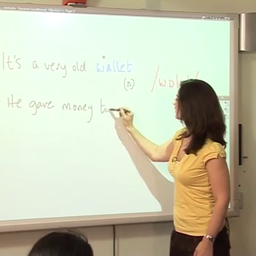 It's a very old wallet
(n)
He gave money t